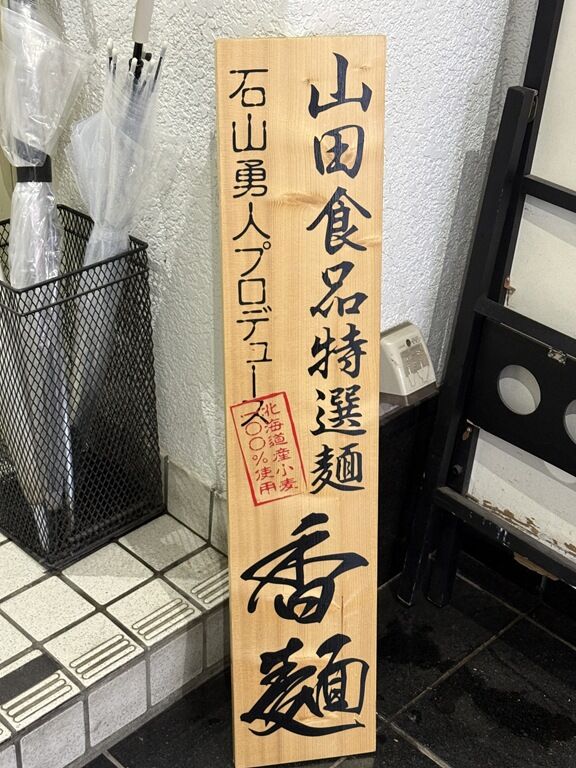 山田食品特選麺
石山勇人プロデュース
北海道産小麦
100%使用
香麺